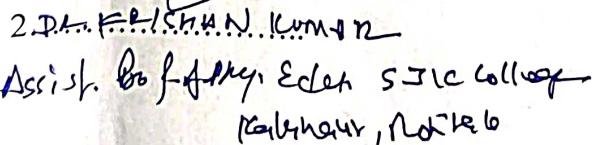 2. Dr. KRISHAN Kumar
Assist. Prof. Phy. Eden SJK College
Kalanaur, Rohtak